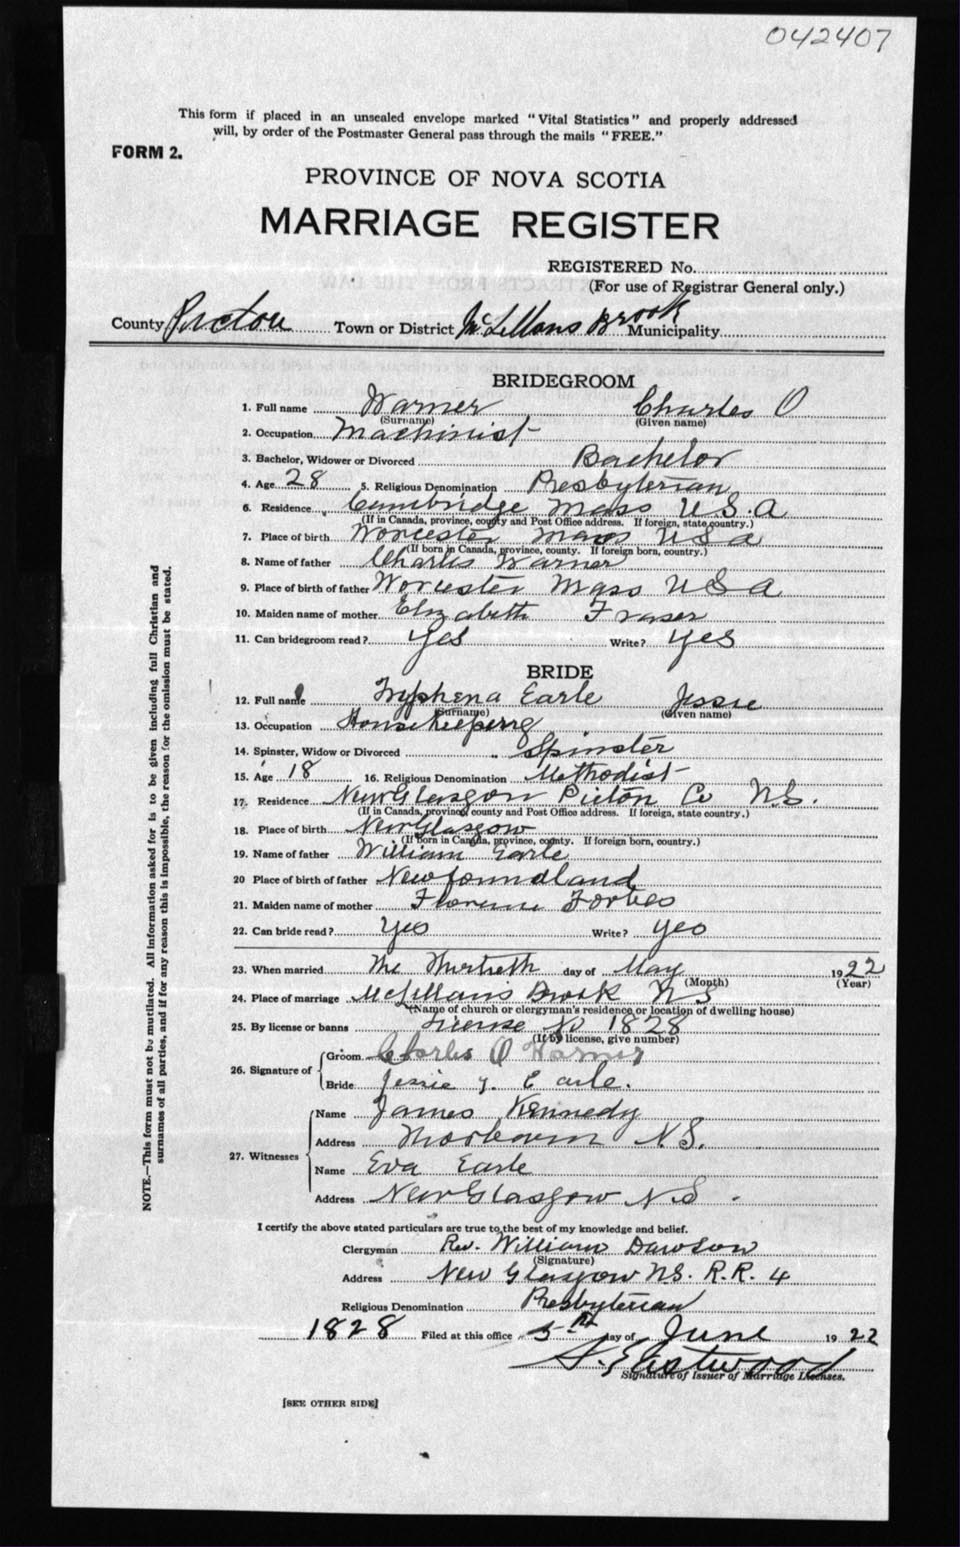 042407
This form if placed in an unsealed envelope marked "Vital Statistics" and properly addressed
will, by order of the Postmaster General pass through the mails "FREE."
FORM 2.
PROVINCE OF NOVA SCOTIA
MARRIAGE REGISTER
REGISTERED No.
(For use of Registrar General only.)
County Pictou Town or District McLellans Brook Municipality
BRIDEGROOM
1. Full name Warner Charles O
(Surname) (Given name)
2. Occupation Machinist
3. Bachelor, Widower or Divorced Bachelor
4. Age 28 5. Religious Denomination Presbyterian
6. Residence Cambridge Mass U.S.A
(If in Canada, province, county and Post Office address. If foreign, state country.)
7. Place of birth Worcester Mass USA
(If born in Canada, province, county. If foreign born, country.)
8. Name of father Charles Warner
9. Place of birth of father Worcester Mass USA
10. Maiden name of mother Elizabeth Fraser
11. Can bridegroom read? Yes Write? Yes
BRIDE
12. Full name Tryphena Earle Jessie
(Surname) (Given name)
13. Occupation Housekeeping
14. Spinster, Widow or Divorced Spinster
15. Age 18 16. Religious Denomination Methodist
17. Residence New Glasgow Pictou Co N.S.
(If in Canada, province, county and Post Office address. If foreign, state country.)
18. Place of birth New Glasgow
(If born in Canada, province, county. If foreign born, country.)
19. Name of father William Earle
20 Place of birth of father Newfoundland
21. Maiden name of mother Florence Forbes
22. Can bride read? Yes Write? Yes
23. When married The Thirtieth day of May 1922
(Month) (Year)
24. Place of marriage McLellans Brook NS
(Name of church or clergyman's residence or location of dwelling house)
25. By license or banns License No 1828
(If by license, give number)
26. Signature of Groom Charles O Warner
Bride Jessie T. Earle.
27. Witnesses Name James Kennedy
Address Thorburn N.S.
Name Eva Earle
Address New Glasgow N.S.
I certify the above stated particulars are true to the best of my knowledge and belief.
Clergyman Rev. William Dawson
(Signature)
Address New Glasgow NS. R.R. 4
Religious Denomination Presbyterian
1828 Filed at this office 5th day of June 1922
S. Eastwood
Signature of Issuer of Marriage Licenses.
[SEE OTHER SIDE]
NOTE.—This form must not be mutilated. All information asked for is to be given including full Christian and
surnames of all parties, and if for any reason this is impossible, the reason for the omission must be stated.